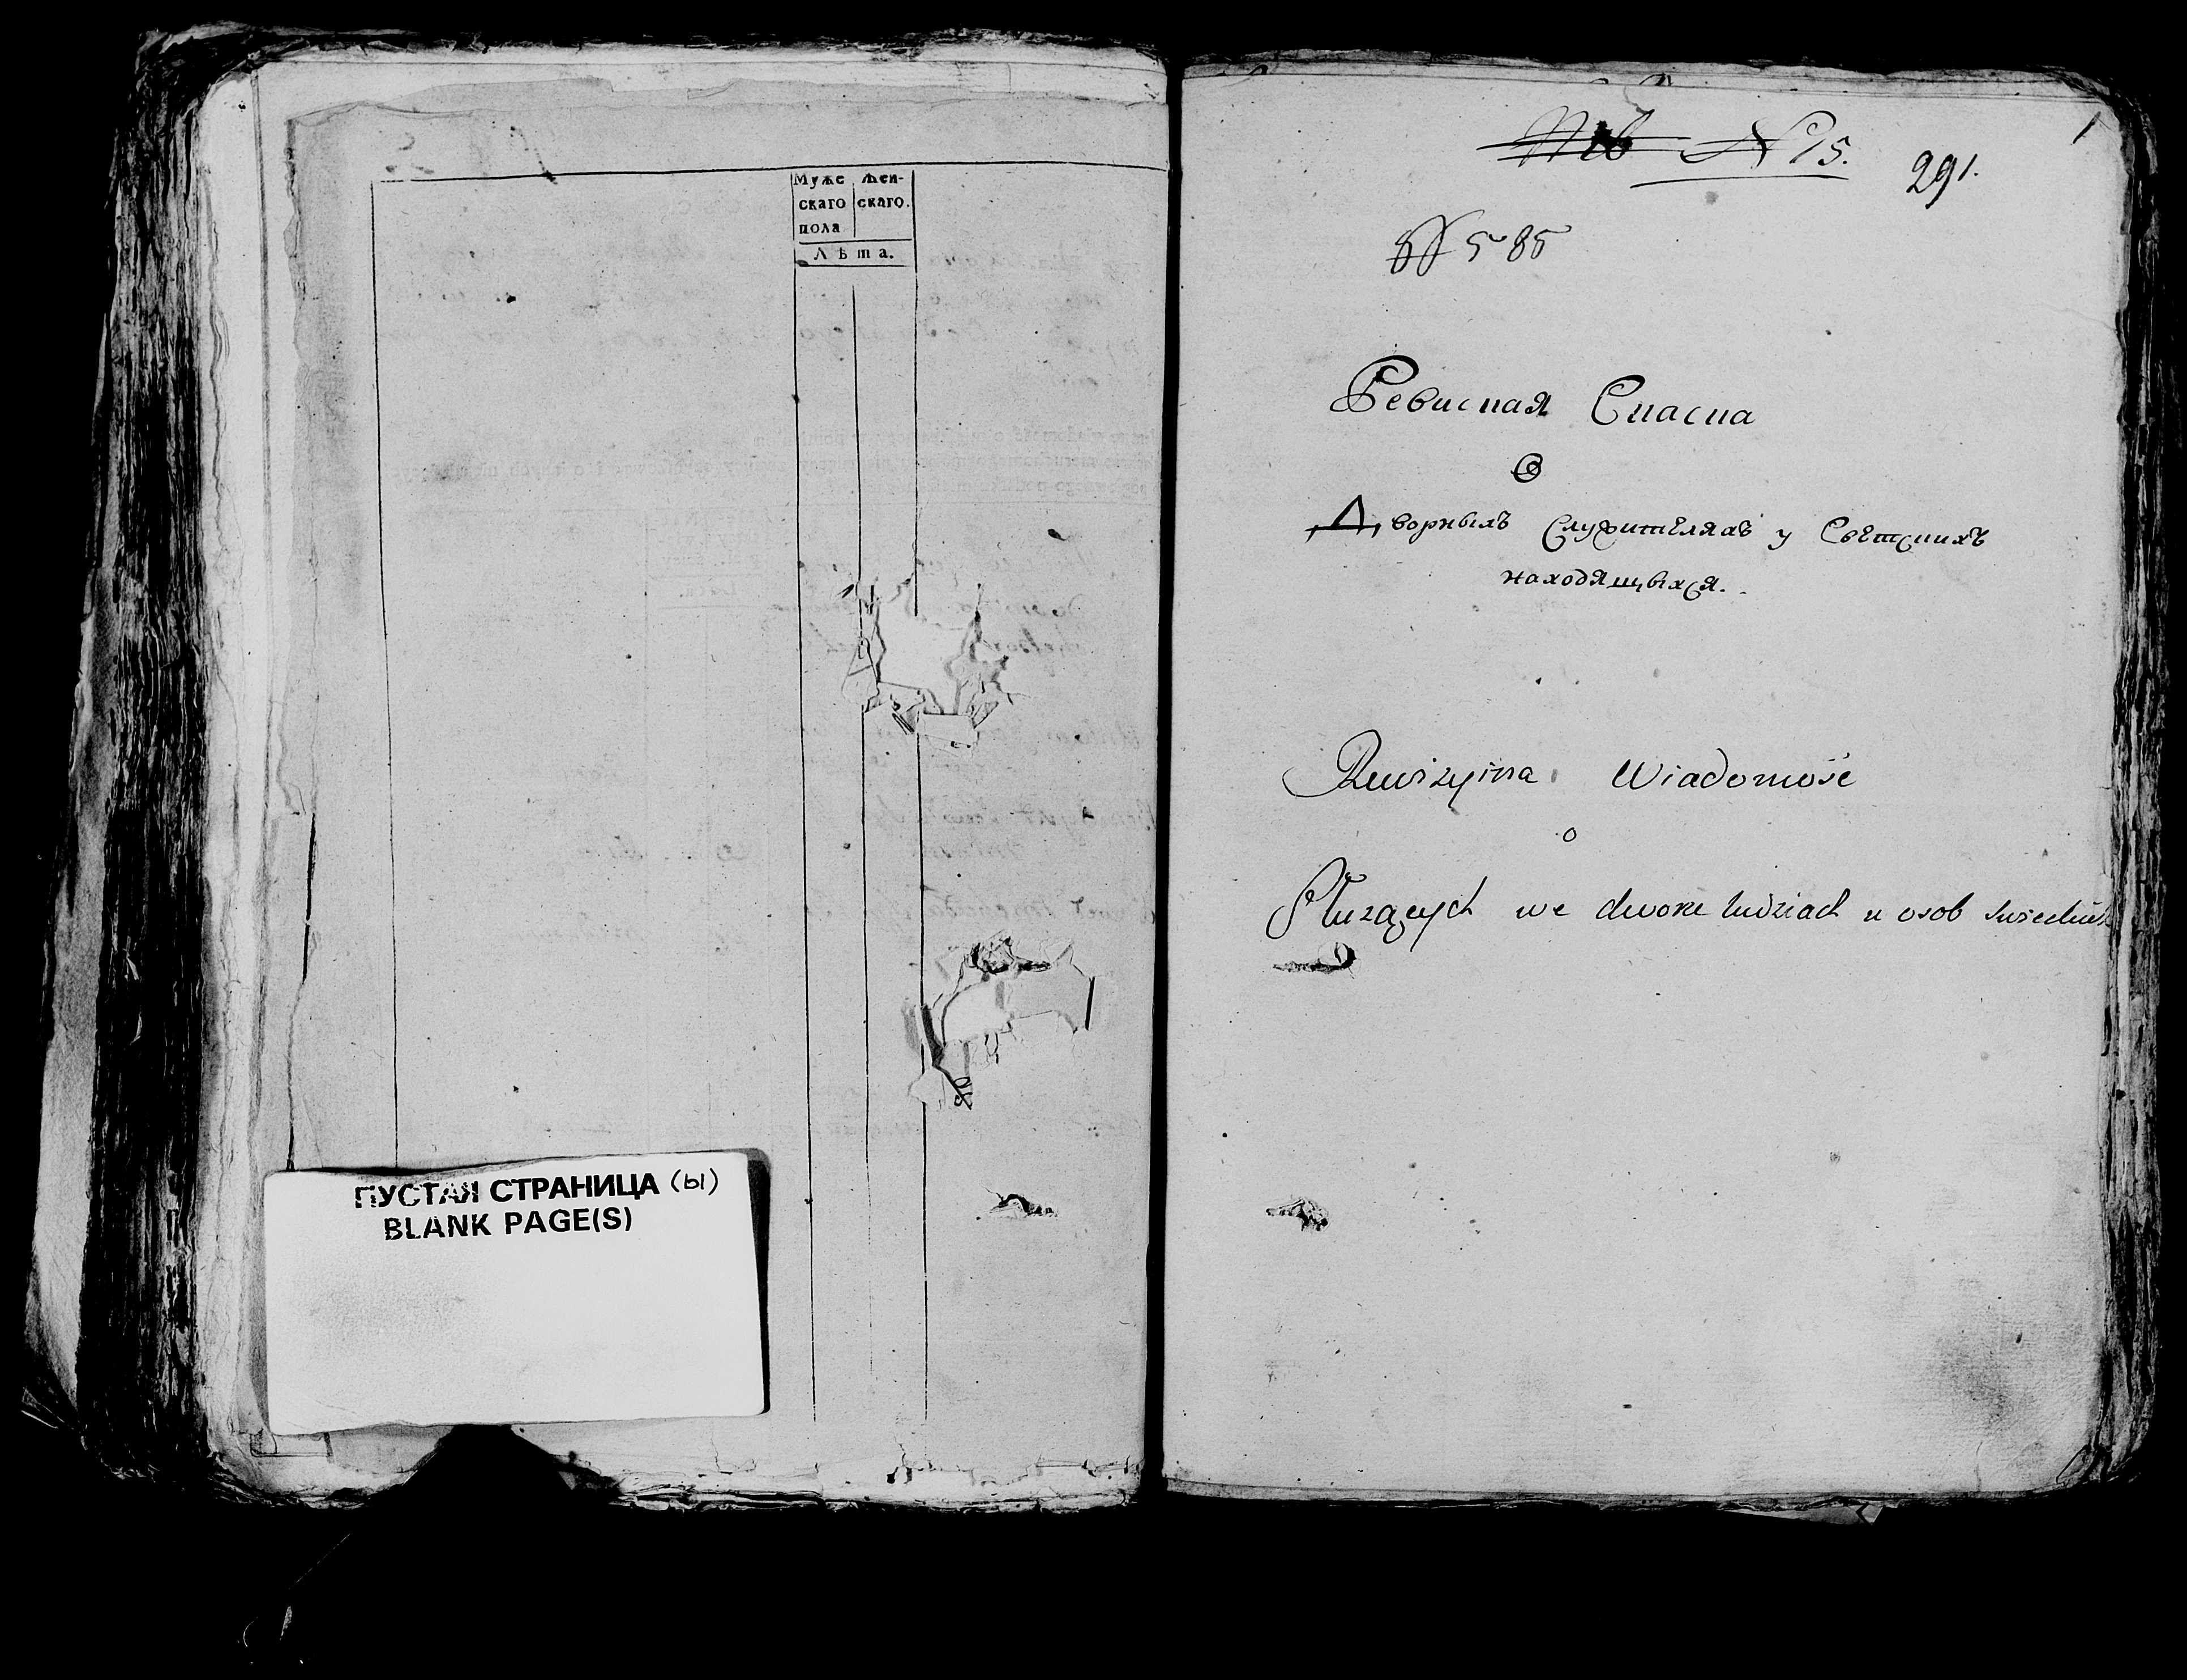 Муже
скаго
пола
Жен-
скаго.
Лѣта.
ПУСТАЯ СТРАНИЦА (ы)
BLANK PAGE(S)
1
N 15.
291.
585
Ревиская Скаска
О
Дворныхъ Служителяхъ у Свѣтскихъ
находящыхся.
Rewizyina Wiadomość
o
Służących we dworze ludziach u osob